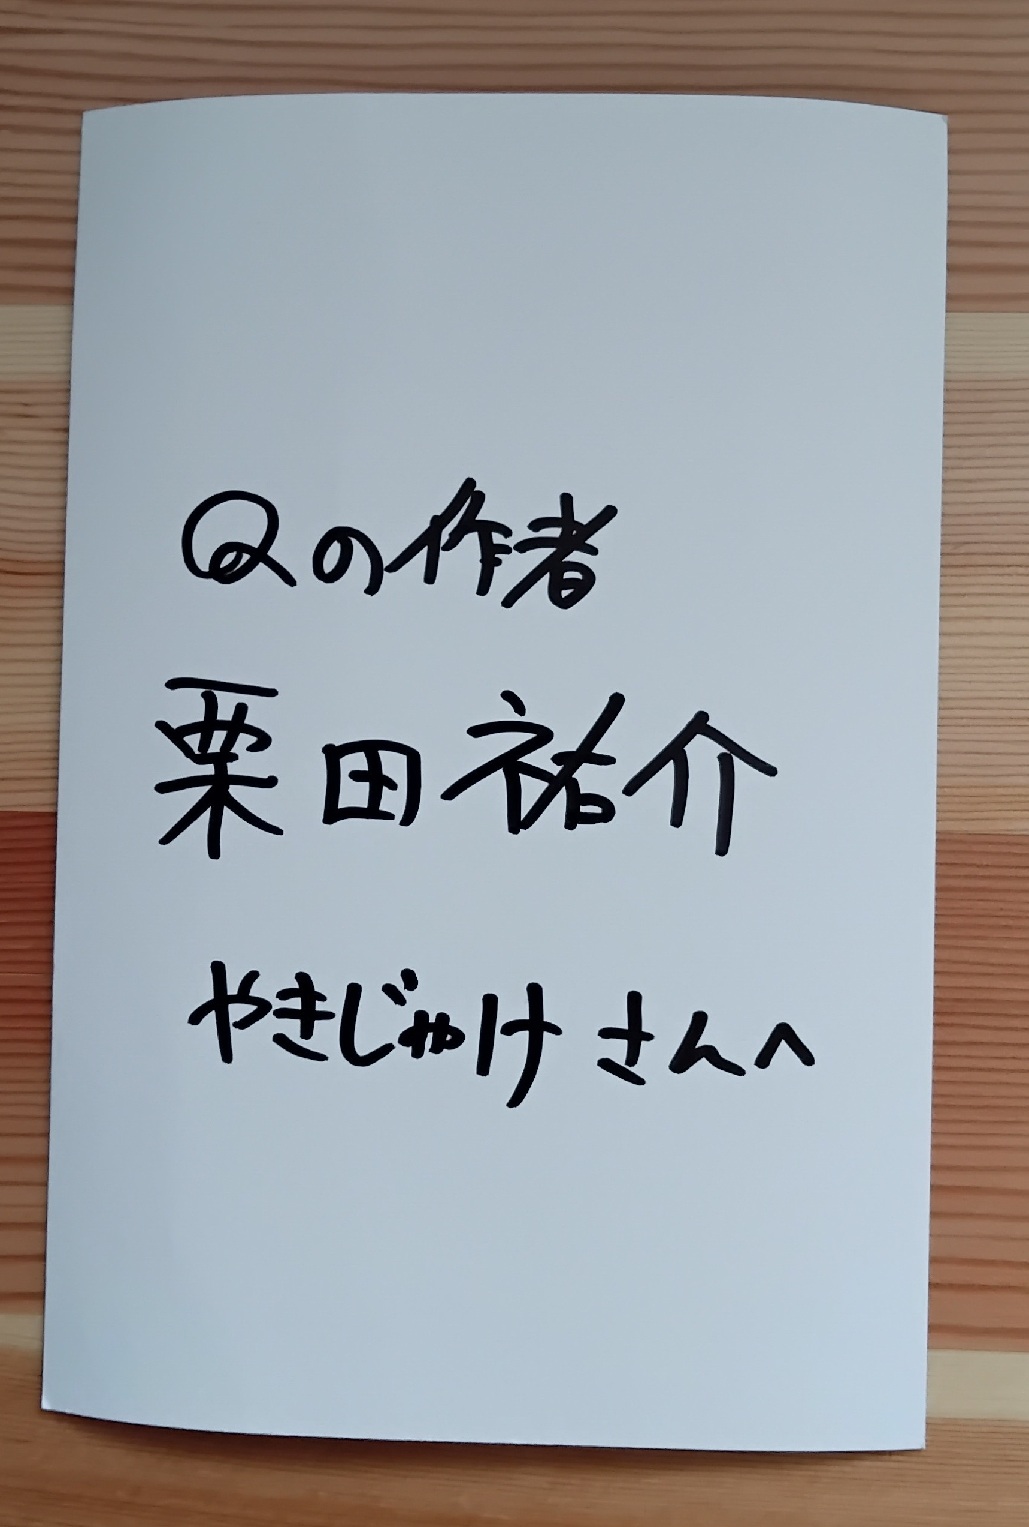 Qの作者
栗田祐介
やきじゃけさんへ